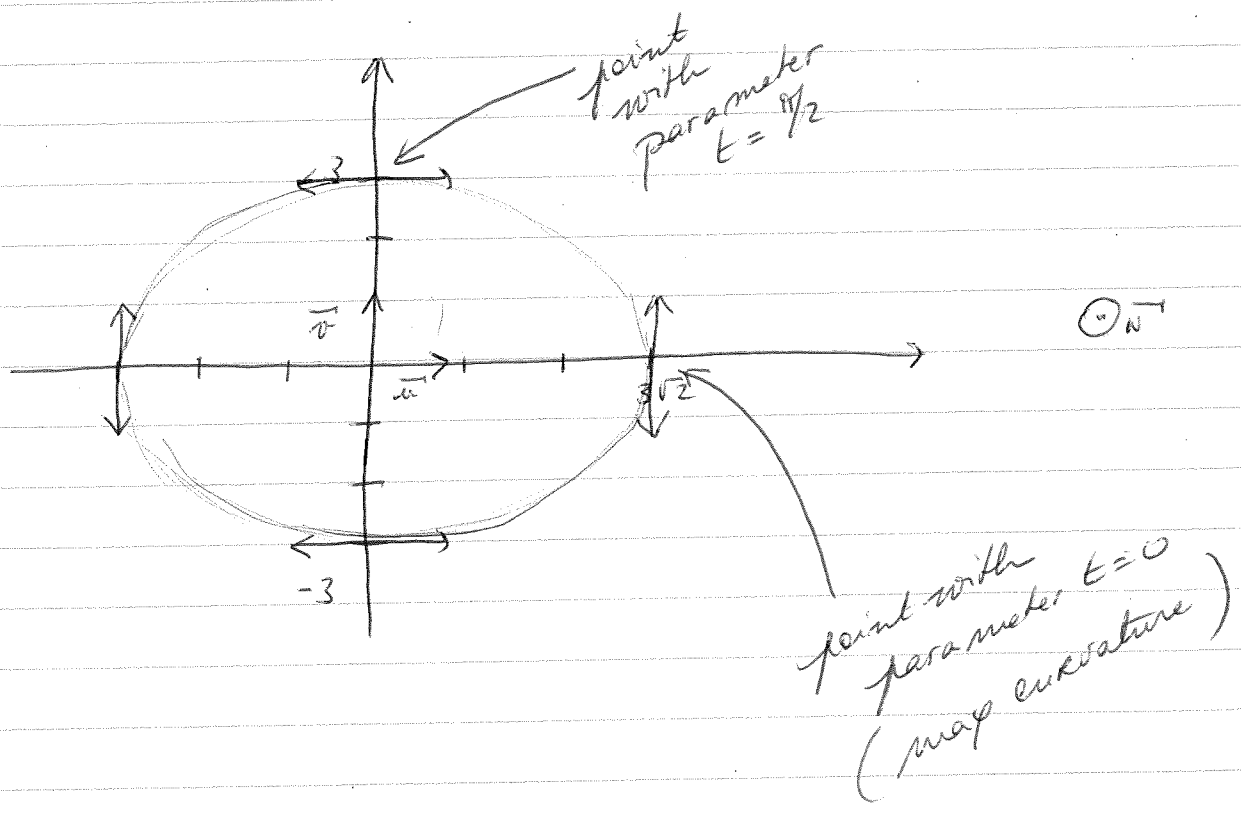 point
with
parameter
t = π/2
3
v
u
N
3√2
-3
point with
parameter t=0
(max curvature)